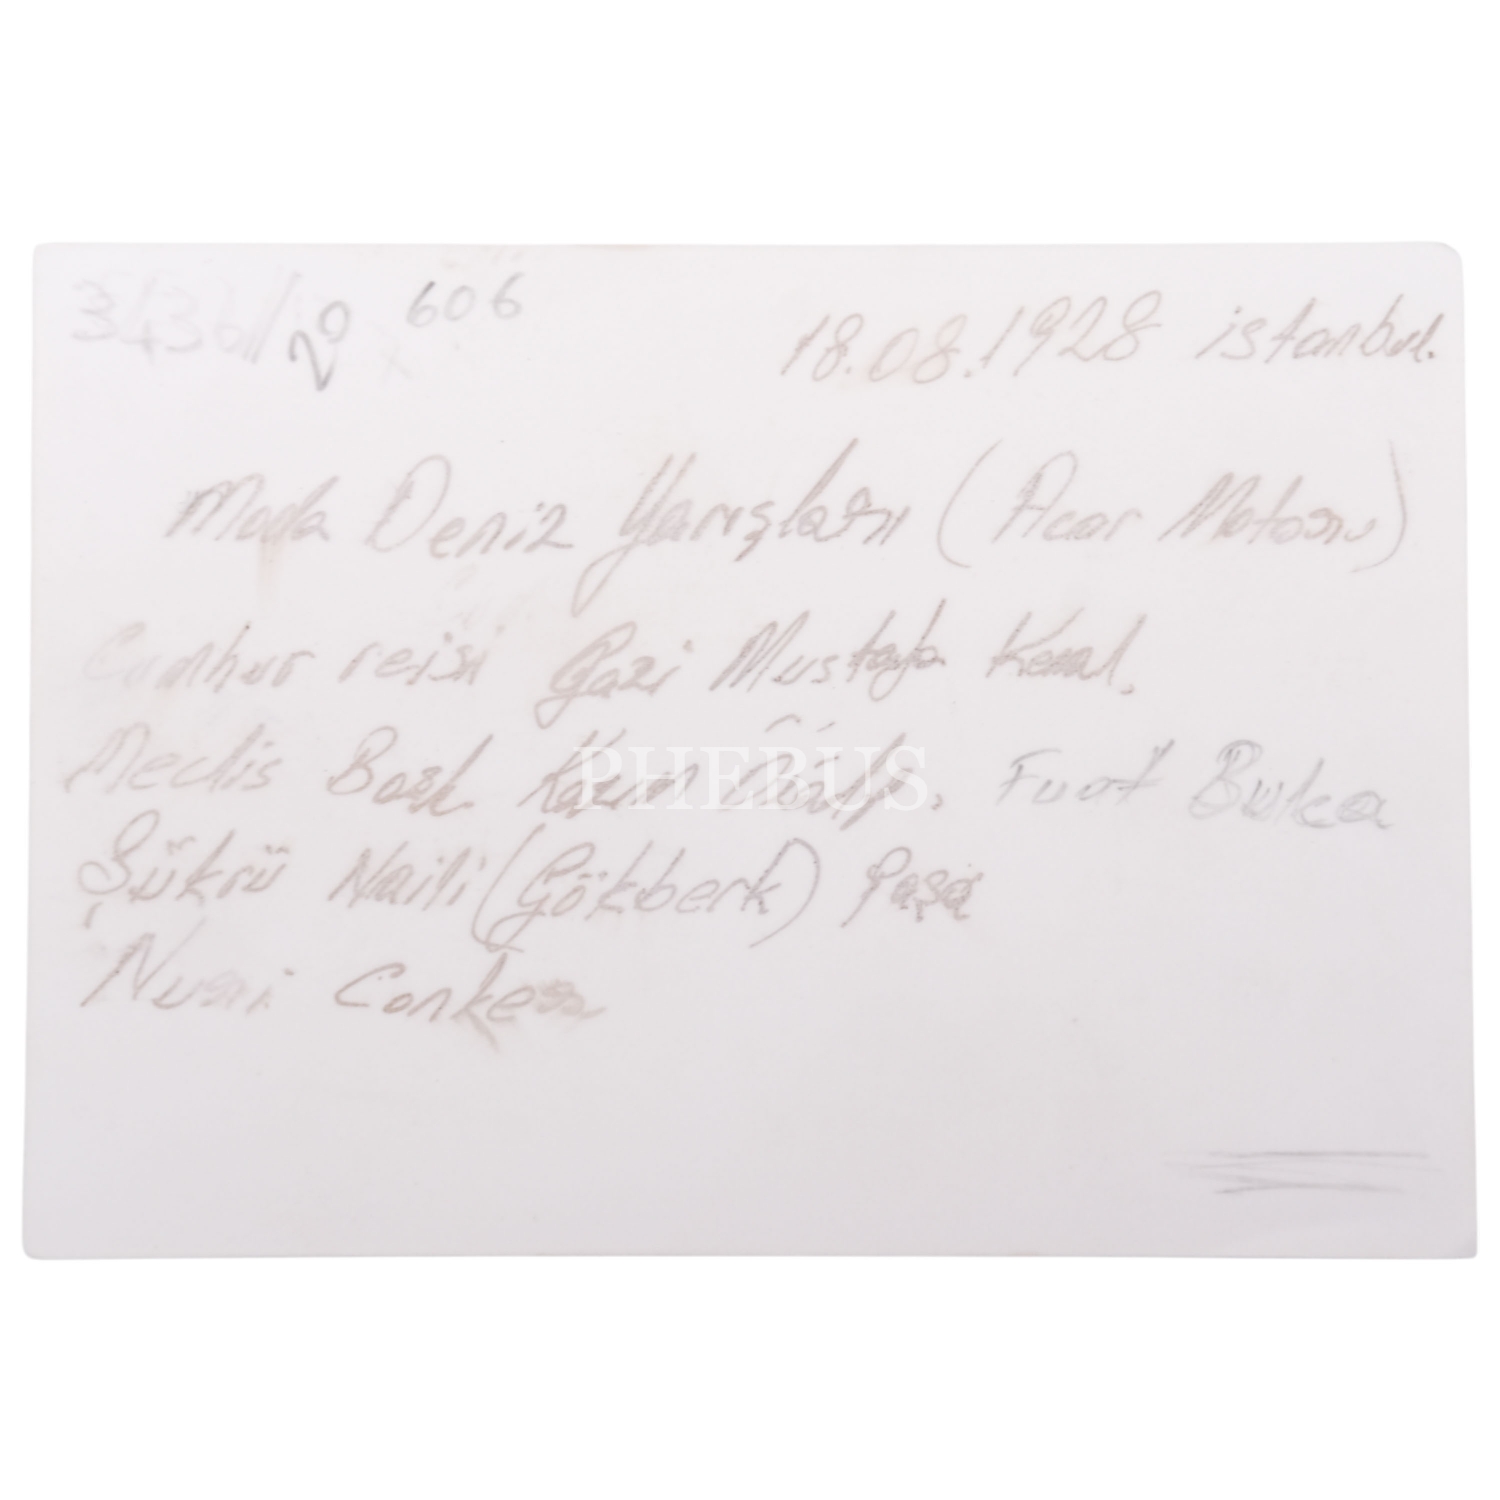 606
20
18.08.1928 istanbul.
Moda Deniz Yarışları (Acar Motoru)
Cumhur reisi Gazi Mustafa Kemal.
Meclis Başk Kazım Özalp. Fuat Bulca
PHEBUS
Şükrü Naili (Gökberk) Paşa
Nuri Conker